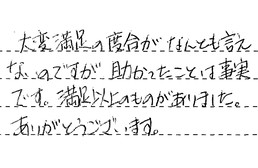 大変満足の度合がなんとも言え
ないのですが助かったことは事実
です。満足以上のものがありました。
ありがとうございます。